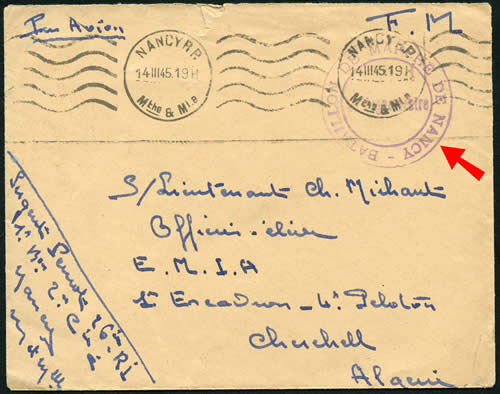 Par Avion
F. M
NANCY R.P.
14 III 45. 19 H
Mthe & Mlle
NANCY R.P.
14 III 45. 19 H
Mthe & Mlle
BATAILLON DE NANCY
S/Lieutenant Ch. Michaut
Officier-élève
E. M. I. A
Escadron - 4e Peloton
Cherchell
Algérie
Sergent 26e R.I.
Nancy